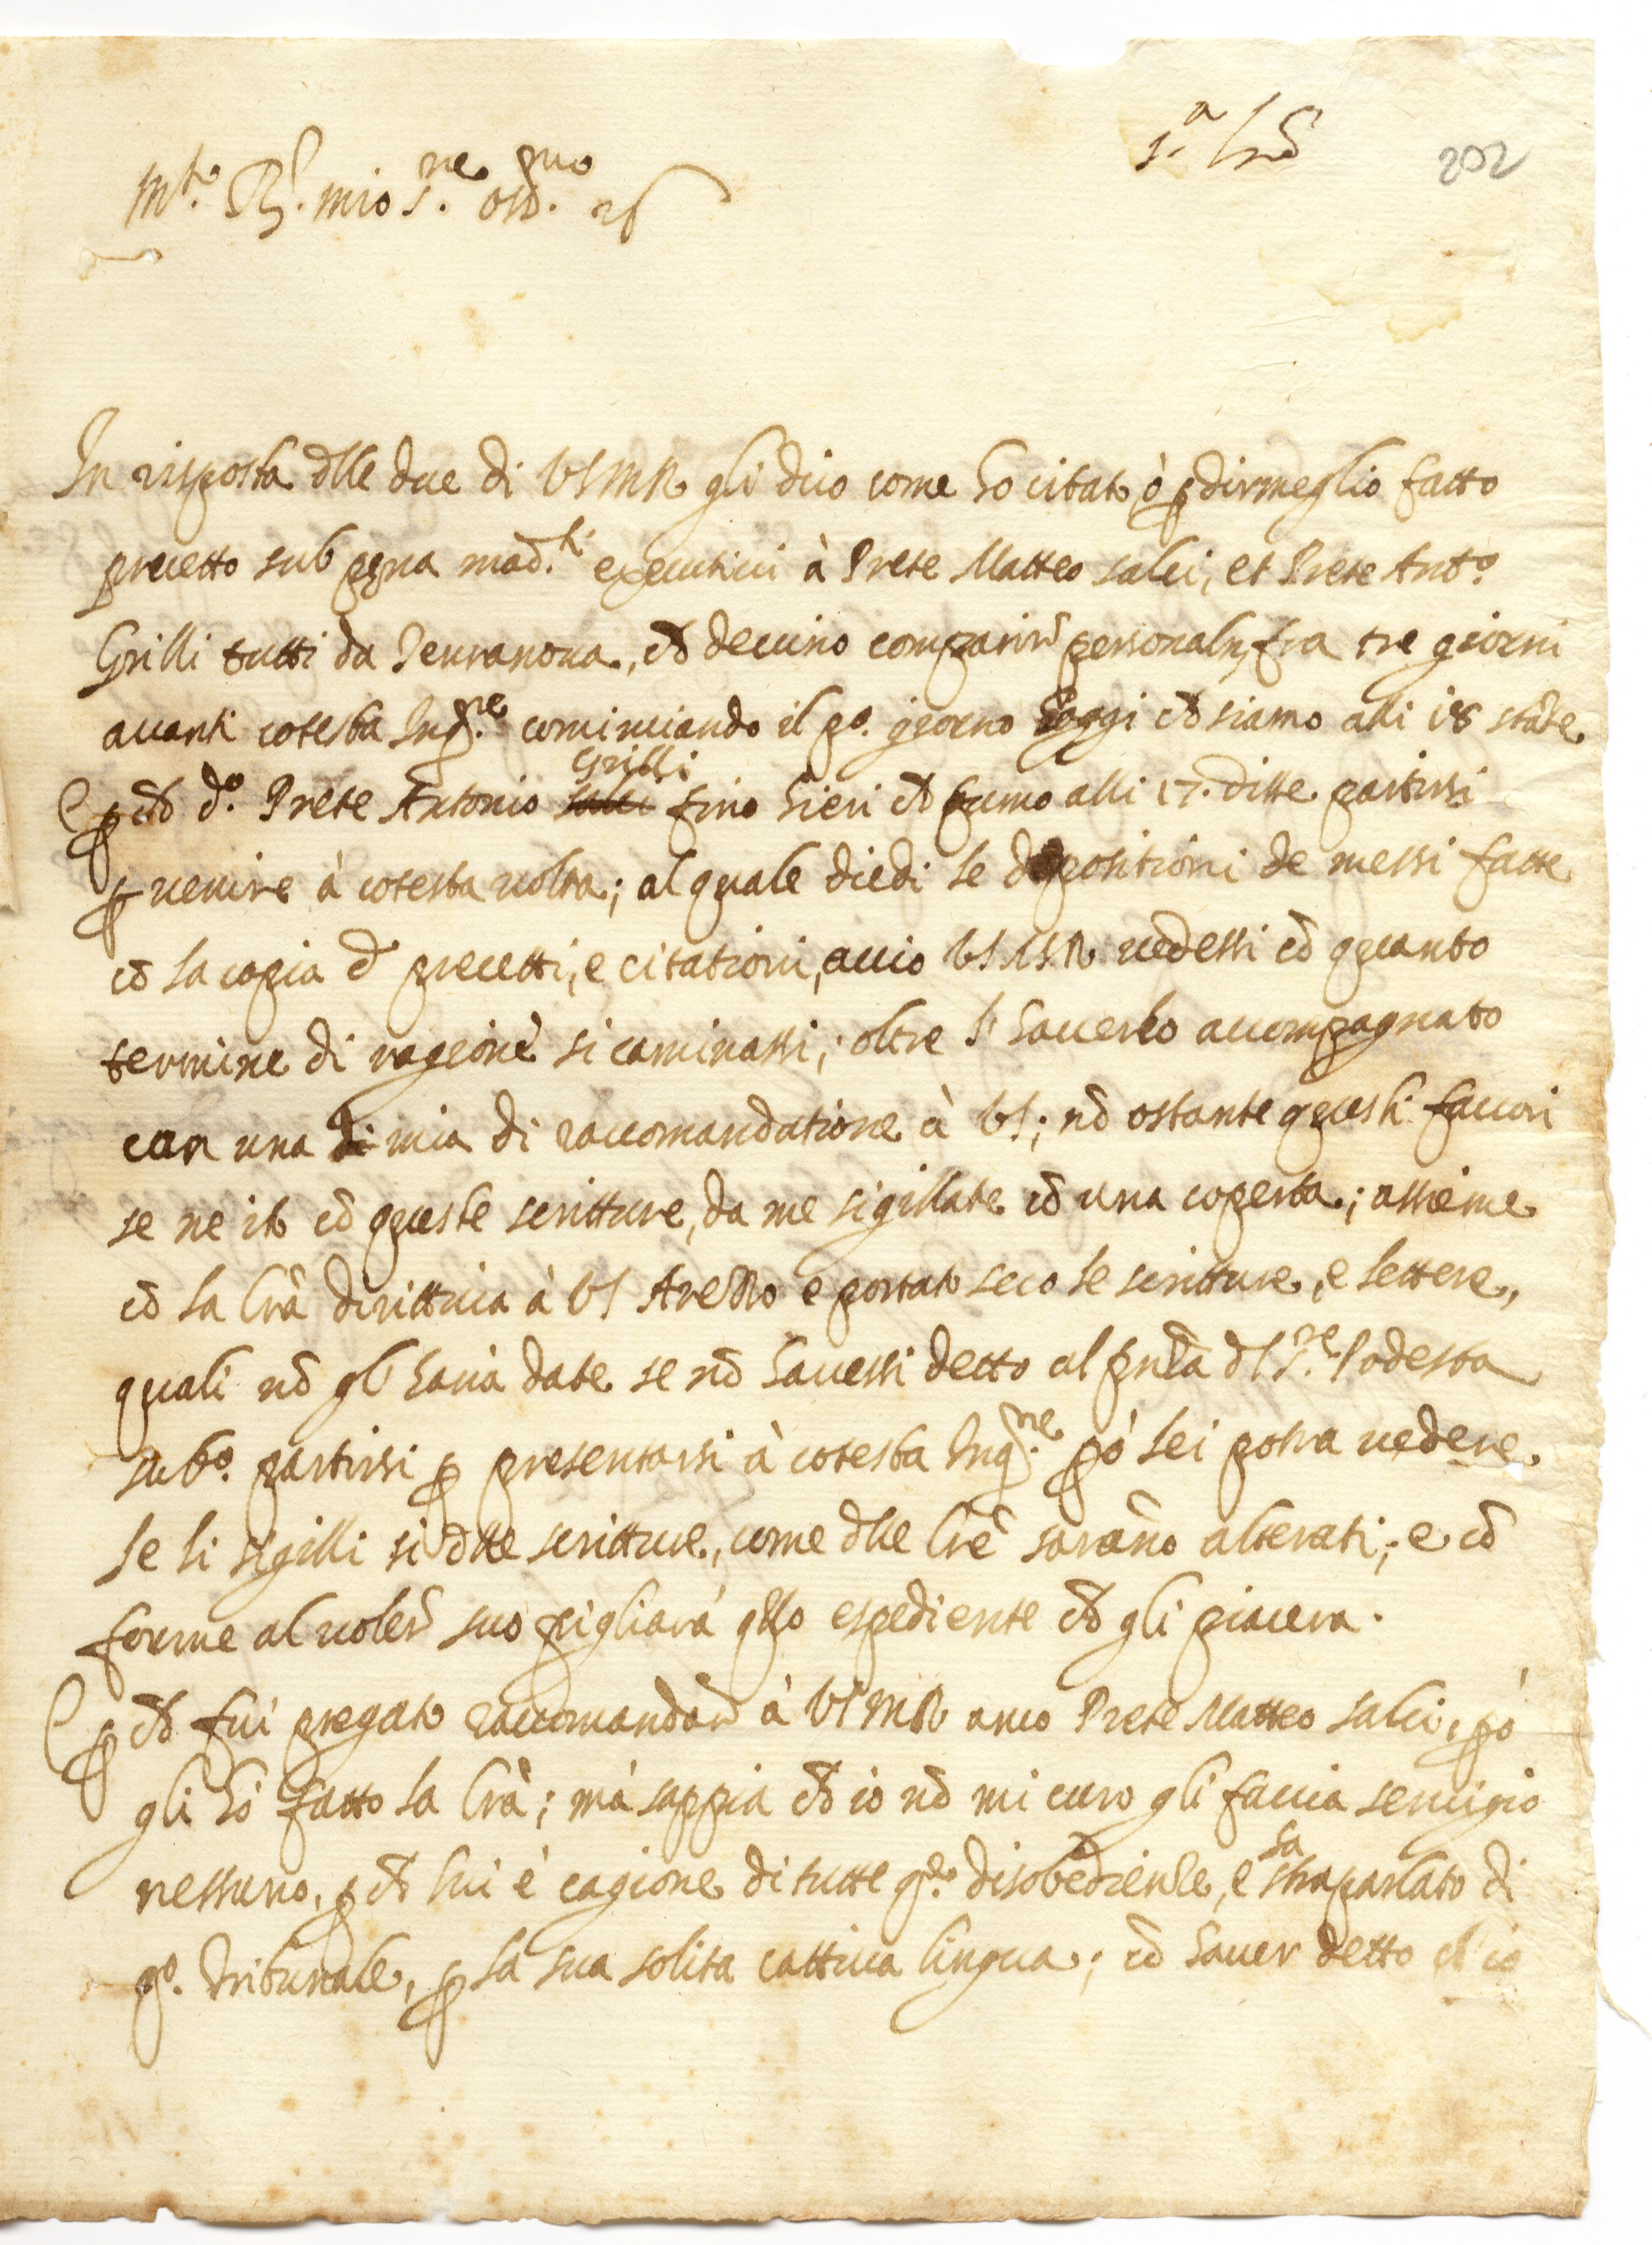 1.ª lrã
202
M.to R.do mio S.re oss.mo
In risposta dlle due di VSMR gli dico come ho citato ò p dirmeglio fatto
precetto sub pena mad.ti executivi à Prete Matteo salci, et Prete Ant.o
Grilli tutti da Terranova, ch̃ devino comparir̃ personalm̃ fra tre giorni
avanti cotesta Inq.ne cominciando il p.o giorno hoggi ch̃ siamo alli 18 stãte
E p ch̃ d.o Prete Antonio salci Grilli fino hieri ch̃ fumo alli 17. disse partirsi
p venire à cotesta volta; al quale diedi le depositioni de messi fatte
cõ la copia d precetti, e citationi, accio VSMR vedessi cõ quanto
termine di ragione si caminassi; oltre l'haverlo accompagnato
con una di mia di raccomandatione à VS; nõ ostante questi favori
se ne ito cõ queste scritture, da me sigillate cõ una coperta; assieme
cõ la lrã dirittiva à VS Arezzo e portato seco le scritture, e lettere,
quali nõ gl'havia date se nõ havessi detto al pñza dl S.re Podesta
sub.o partirsi p presentarsi à cotesta Inq.ne pò lei potra vedere
se li sigilli si dlle scritture, come dlle lrẽ sarãno alterati; e cõ
forme al voler̃ suo pigliarà qllo espediente ch̃ gli piacera.
E p ch̃ fui pregato raccomandar̃ à VSMR anco Prete Matteo salci, pò
gli hò fatto la lrã; mà sappia ch̃ io nõ mi curo gli faccia servigio
nessuno, p ch̃ lui è cagione di tutte q.e disobedienze, e ha straparlato di
q.o tribunale, p la sua solita cattiva lingua; cõ haver detto ch̃ io